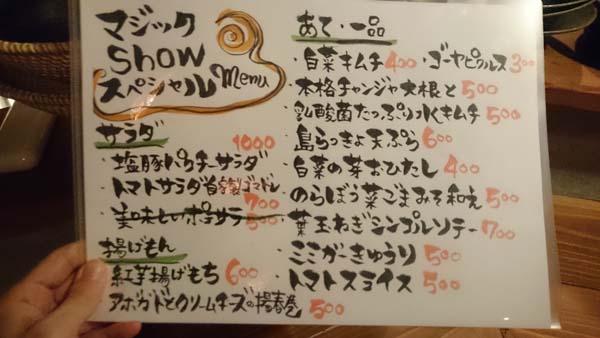 マジック
Show
スペシャル Menu
サラダ
1000
・塩豚パクチーサラダ
トマトサラダ自家製ゴマドレ
700
・美味しいポテサラ 500
揚げもん
・紅芋揚げもち 600
アボガドとクリームチーズの揚春巻 500
あて・一品
・白菜キムチ 400 ・ゴーヤピクルス 300
・本格チャンジャ大根と 500
・乳酸菌たっぷり水キムチ 500
・島らっきょ天ぷら 600
・白菜の芽おひたし 400
・のらぼう菜ごまみそ和え 500
・葉玉ねぎシンプルソテー 700
・ここがーきゅうり 500
・トマトスライス 500